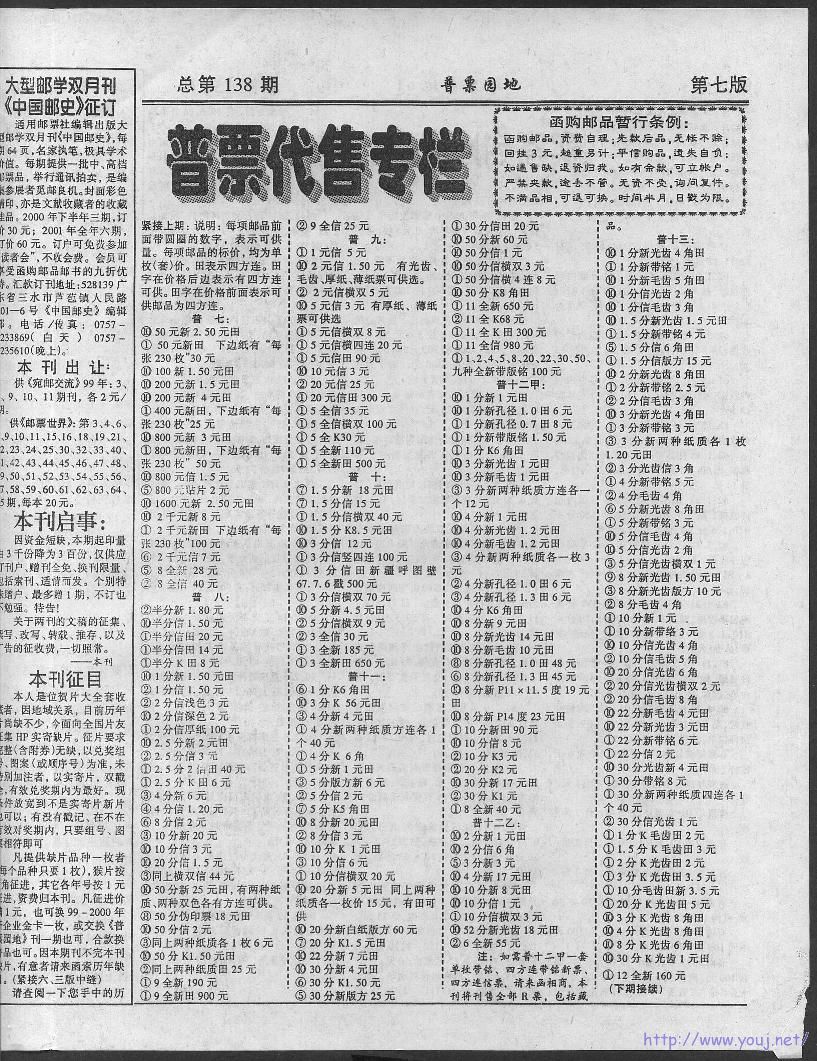 总第 138 期
普票园地
第七版
大型邮学双月刊
《中国邮史》征订
适用邮票社编辑出版大
型邮学双月刊《中国邮史》,每
期 64 页,名家执笔,极具学术
价值。每期提供一批中、高档
邮票品,举行通讯拍卖,是编
集参展者觅邮良机。封面彩色
精印,亦是文献收藏者的收藏
佳品。2000 年下半年三期,订
价 30 元；2001 年全年六期,
订价 60 元。订户可免费参加
“读者会”,不收会费。会员可
享受函购邮品邮书的九折优
待。汇款订刊地址:528139 广
东省三水市芦苞镇人民路
01—6号《中国邮史》编辑
部。电话/传真:0757-
233869(白天) 0757-
235610(晚上)。
本刊出让:
供《宛邮交流》99 年:3、
、9、10、11 期刊,各 2 元/
期。
供《邮票世界》:第 3、4、6、
本刊启事:
因资金短缺,本期起印量
由 3 千份降为 3 百份,仅供应
订刊户、赠刊全免、换刊限量、
包括索刊、适情而发。个别特
殊赠户、最多赠 1 期,不订也
不勉强。特告!
关于两刊的文稿的征集、
撰写、改写、转载、推荐,以及
广告的征收费,一切照常。
——本刊
本刊征目
本人是位贺片大全套收
藏者,因地域关系,目前历年
片尚缺不少,今面向全国片友
征集 HP 实寄缺片。征片要求
完整(含附券)无缺,以兑奖组
号、图案(或顺序号)为准,未
特别加注者,以实寄片,双戳
全,有效兑奖期内为最好。现
条件放宽到不是实寄片新片
也可以;有没有戳记、在不在
有效对奖期内,只要组号、图
案相符即可
凡提供缺片品种一枚者
(每个品种只要 1 枚),猴片按
角征进,其它各年号按 1 元
征进,资费归本刊。凡征进价
满 1 元,也可换 99-2000 年
企业金卡一枚,或交换《普
票园地》刊一期也可,合款换
品也可。因本期刊不完本刊
缺片,有意者请来函索历年缺
目。(紧接六、三版中缝)
请查阅一下您手中的历
普票代售专栏
函购邮品暂行条例:
函购邮品,资费自理;先款后品,无帐不赊;
回挂 3 元,超重另计;平信购品,遗失自负;
如遇售缺,退资归我。如有余款,可立帐户。
严禁夹款,途丢不管。无资不受,询问复件。
不满品相,可退可换。时间半月,日戳为限。
紧接上期:说明:每项邮品前
面带圆圈的数字,表示可供
量。每项邮品的标价,均为单
枚(套)价。田表示四方连。田
字在价格后边表示有四方连
可供。田字在价格前面表示可
供邮品为四方连。
普 七:
⑩ 50 元新 2.50 元田
① 50 元新田 下边纸有“每
张 230 枚”30 元
⑩ 100 新 1.50 元田
⑩ 200 元新 1.5 元田
⑩ 200 元新 4 元田
① 400 元新田,下边纸有“每
张 230 枚”25 元
⑩ 800 元新 3 元田
① 800 元新田,下边纸有“每
张 230 枚” 50 元
⑩ 800 元信 1.5 元
⑤ 800 元贴片 2 元
⑩ 1600 元新 2.50 元田
⑩ 2 千元新 8 元
① 2 千元新田 下边纸有“每
张 230 枚”100 元
⑥ 2 千元信 7 元
⑤ 8 全新 28 元
② 8 全信 40 元
普 八:
②半分新 1.80 元
⑩半分信 1.50 元
①半分信田 20 元
①半分信田 14 元
①半分 K 田 8 元
⑩ 1 分新 1.50 元田
① 1 分信 1.50 元
② 2 分信浅色 3 元
⑩ 2 分信深色 2 元
① 2 分信厚纸 100 元
⑩ 2.5 分新 2 元田
② 2.5 分信 3 元
① 2.5 分 2 信田 40 元
① 2.5 分 K 田 6 元
③ 4 分新 6 元
④ 4 分信 1.20 元
⑥ 8 分信 2 元
③ 10 分新 20 元
⑩ 10 分信 3 元
⑩ 20 分信 1.5 元
③同上横双信 44 元
⑩ 50 分新 25 元田,有两种纸
质、两种双色各有方连可供。
⑧ 50 分伪印票 18 元田
⑩ 50 分信 2 元
③同上两种纸质各 1 枚 6 元
⑩ 50 分 K1.50 元田
②同上两种纸质田 25 元
① 9 全新 190 元
① 9 全新田 900 元
② 9 全信 25 元
普 九:
① 1 元信 5 元
⑩ 2 元信 1.50 元 有光齿、
毛齿、厚纸、薄纸票可供选
① 2 元信横双 5 元
⑩ 5 元信 3 元 有厚纸、薄纸
票可供选
① 5 元信横双 8 元
① 5 元信横四连 20 元
① 5 元信田 90 元
⑩ 10 元信 3 元
② 20 元信 25 元
① 20 元信田 300 元
① 5 全信 35 元
① 5 全信横双 100 元
① 5 全 K30 元
① 5 全新 110 元
① 5 全新田 500 元
普 十:
⑦ 1.5 分新 18 元田
⑦ 1.5 分信 15 元
① 1.5 分信横双 40 元
⑩ 1.5 分 K8.5 元田
⑩ 3 分信 12 元
① 3 分信竖四连 100 元
① 3 分信田新疆呼图壁
67.7.6 戳 500 元
① 3 分信横双 70 元
⑩ 5 分新 4.5 元田
② 5 分信横双 9 元
② 3 全信 30 元
① 3 全新 185 元
① 3 全新田 650 元
普十一:
⑥ 1 分 K6 角田
⑩ 3 分 K 56 元田
③ 4 分新 4 元田
① 4 分新两种纸质方连各 1
个 40 元
① 4 分 K 6 角
① 5 分新 1 元田
③ 5 分版方新 6 元
② 5 分信 2 元
⑦ 5 分 K5 角田
⑩ 8 分新 20 元田
② 8 分信 3 元
⑩ 10 分 K 1 元田
③ 10 分信 6 元
① 10 分信横双 20 元
⑩ 20 分新 5 元田 同上两种
纸质各一枚价 15 元,有田可
供
⑩ 20 分新白纸版方 60 元
⑦ 20 分 K1.5 元田
⑩ 22 分新 7 元田
③ 30 分新 4 元田
⑥ 30 分 K1.50 元
⑤ 30 分新版方 25 元
① 30 分信田 20 元
⑩ 50 分新 60 元
⑩ 50 分信 1 元
⑩ 50 分信横双 3 元
① 50 分信横 4 连 8 元
⑩ 50 分 K8 角田
① 11 全新 650 元
② 11 全 K68 元
① 11 全 K 田 300 元
① 11 全信 980 元
① 1、2、4、5、8、20、22、30、50、
九种全新带版铭 100 元
普十二甲:
⑩ 1 分新 1 元田
① 1 分新孔径 1.0 田 6 元
① 1 分新孔径 0.7 田 8 元
① 1 分新带版铭 1.50 元
① 1 分 K6 角田
⑩ 3 分新光齿 1 元田
⑩ 3 分新毛齿 1 元田
③ 3 分新两种纸质方连各一
个 12 元
⑩ 4 分新 1 元田
⑩ 4 分新光齿 1.2 元田
⑩ 4 分新毛齿 1.2 元田
③ 4 分新两种纸质各一枚 3
元
② 4 分新孔径 1.0 田 6 元
③ 4 分新孔径 1.3 田 6 元
⑩ 4 分 K6 角田
⑩ 8 分新 9 元田
⑩ 8 分新光齿 14 元田
⑩ 8 分新毛齿 10 元田
⑧ 8 分新孔径 1.0 田 48 元
⑥ 8 分新孔径 1.3 田 45 元
⑩ 8 分新 P11×11.5 度 19 元
田
⑩ 8 分新 P14 度 23 元田
① 10 分新田 90 元
⑩ 10 分信 8 元
② 10 分 K3 元
② 20 分 K2 元
⑩ 30 分新 17 元田
② 30 分 K1 元
① 8 全新 40 元
普十二乙:
⑩ 2 分新 1 元田
⑩ 2 分信 6 角
⑤ 3 分新 3 元
④ 4 分新 17 元田
⑩ 10 分新 8 元田
⑩ 10 分信 1 元
① 10 分信横双 3 元
⑩ 52 分新光齿 18 元田
② 6 全新 55 元
注:如需普十二甲一套
单枚带铭、四方连带铭新票、
四方连信票、请来函相商。本
刊将刊售全部 R 票,包括藏
品。
普十三:
⑩ 1 分新光齿 4 角田
① 1 分新带铭 1 元
⑩ 1 分新毛齿 5 角田
⑩ 1 分信光齿 2 角
⑩ 1 分信毛齿 3 角
⑩ 1.5 分新光齿 1.5 元田
① 1.5 分新带铭 4 元
⑤ 1.5 分信 6 角田
① 1.5 分信版方 15 元
⑩ 2 分新光齿 8 角田
② 2 分新带铭 2.5 元
② 2 分信毛齿 3 角
⑩ 3 分新光齿 4 角田
③ 3 分新带铭 3 元
③ 3 分新两种纸质各 1 枚
1.20 元田
② 3 分光齿信 3 角
① 4 分新光齿 5 元
② 4 分毛齿 4 角
⑥ 5 分新光齿 8 角田
① 5 分新带铭 3 元
⑩ 5 分信毛齿 4 角
⑩ 5 分信光齿 2 角
⑨ 8 分新光齿 1.50 元田
③ 8 分新光齿版方 10 元
② 8 分毛齿 4 角
① 10 分新 1 元
① 10 分新带络 3 元
⑩ 10 分信光齿 4 角
② 10 分信毛齿 6 角
⑩ 20 分信光齿 5 角
② 20 分信光齿横双 2 元
① 20 分信毛齿 8 角
⑩ 22 分新毛齿 4 元田
① 22 分新毛齿 3 元田
① 22 分新带铭 6 元
① 22 分信 2 元
⑩ 30 分光齿新 4 元田
① 30 分新带铭 8 元
① 30 分新两种纸质四连各 1
个 40 元
② 30 分信光齿 1 元
① 1 分 K 毛齿田 2 元
① 1.5 分 K 毛齿田 3 元
① 2 分 K 光齿田 2 元
① 3 分 K 光齿田 3.5 元
① 10 分毛齿田新 3.5 元
① 20 分 K 光齿田 5 元
⑩ 3 分 K 光齿 4 角田
⑩ 4 分 K 光齿 8 角田
⑩ 8 分 K 光齿 6 角田
⑩ 30 分 K 光齿 1 元田
① 12 全新 160 元
(下期接续)
http://www.youj.net/